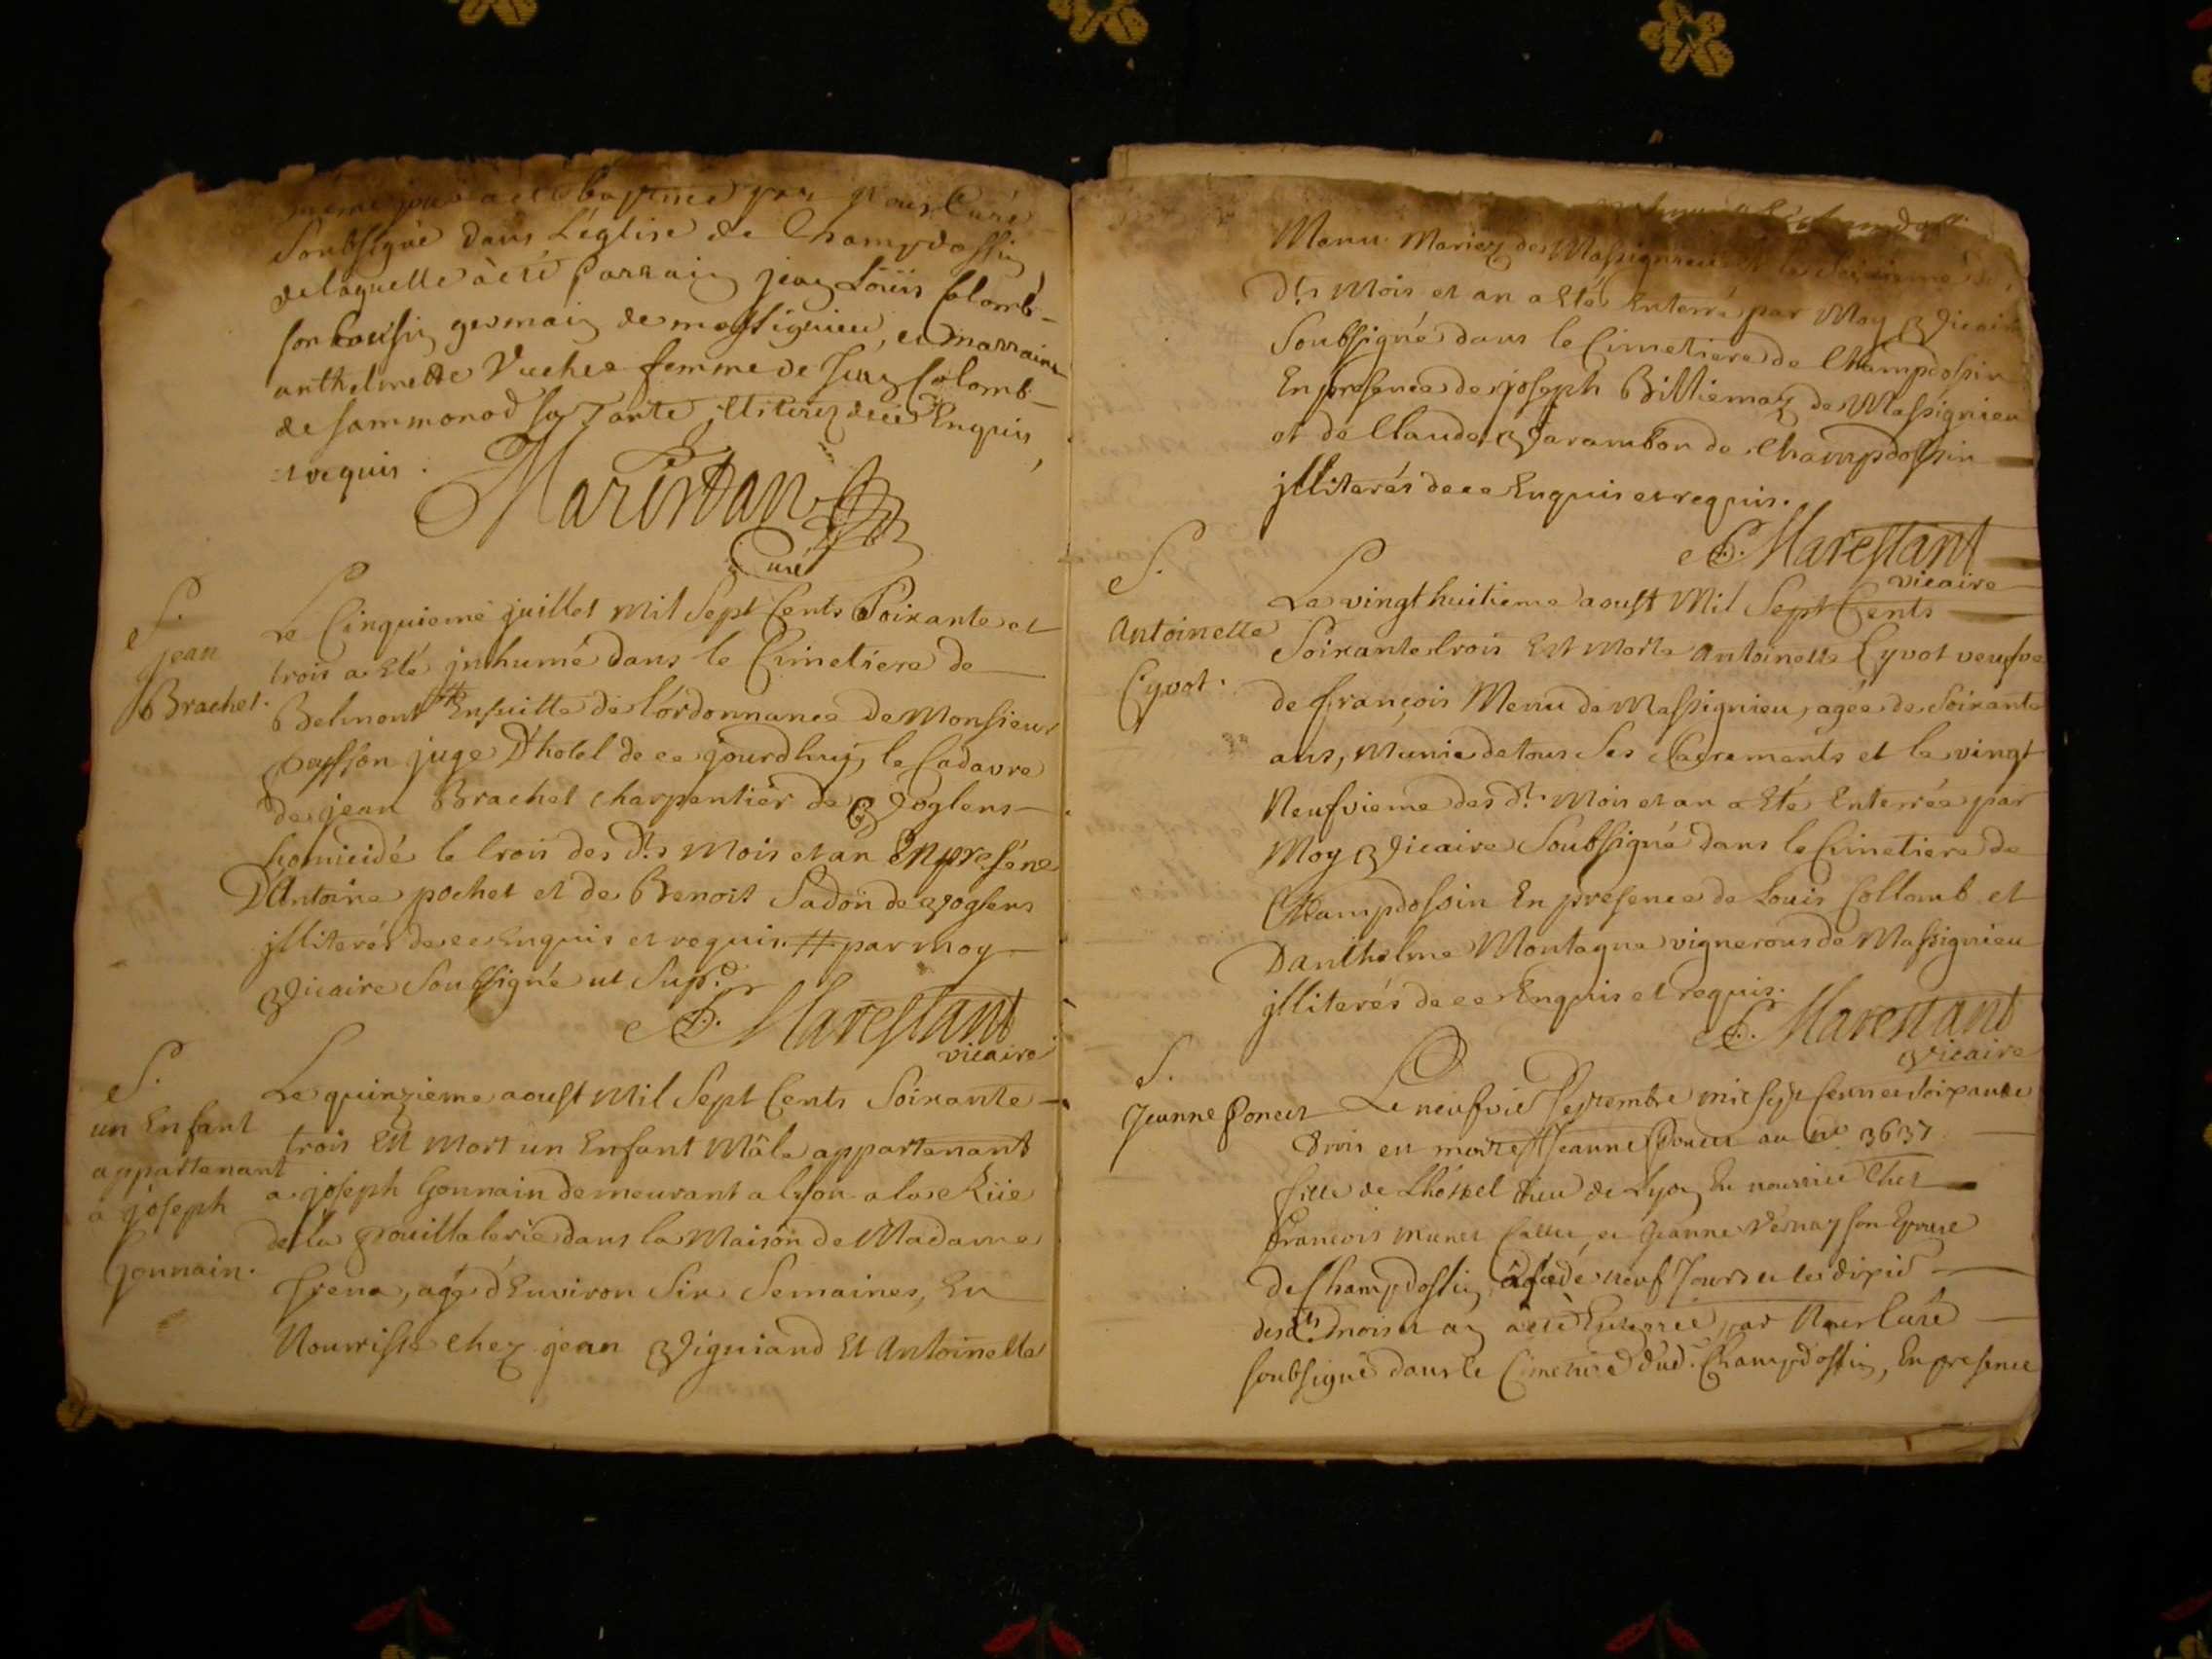 même jour a eté baptisée par Nous Curé
soubsigné dans L'église de Champdossin
de laquelle à eté Parrain jean Loüis Colomb
son Cousin germain de massignieu, et marraine
anthelmette Vuches femme de Jean Colomb
de sammonod sa Tante illiterez de ce Enquis
et requis.
Maristan
Curé
S.
jean
Brachet.
Le Cinquieme juillet Mil Sept Cents Soixante et
trois a Eté inhumé dans le Cimetiere de
Belmont # Ensuitte de l'ordonnance de Monsieur
juge D'hotel de ce jourdhuy, le Cadavre
de jean Brachet charpentier de Voglens
homicidé le trois des d.ts Mois et an En presence
D'Antoine pochet et de Benoit Sadon de voglens
jlliterés de ce Enquis et requis. # par moy
Vicaire Soussigné ut Sup.
Marestant
vicaire
S.
un Enfant
appartenant
a joseph
Gonnain.
Le quinzieme aoust Mil Sept Cents Soixante
trois Est Mort un Enfant Mâle appartenant
a joseph Gonnain demeurant a Lyon a la Rüe
de la pouillalerie dans la Maison de Madame
frena, agé d'Environ Six Semaines, En
Nourisse chez jean Vigniand Et Antoinette
Menu Mariez de Massignieu et le Seizieme
d.ts Mois et an a Eté Enterré par Moy Vicaire
Soubsigné dans le Cimetiere de Champdossin
En presence de joseph Billiemaz de Massignieu
et de Claude Jarambon de Champdossin
jlliterés de ce Enquis et requis.
Marestant
vicaire
S.
Antoinette
Cyvot.
Le vingt huitieme aoust Mil Sept Cents
Soixante trois Est Morte Antoinette Cyvot veufve
de françois Menu de Massignieu, agée de Soixante
ans, Munie de tous Ses Sacrements et le vingt
Neufvieme des d.ts Mois et an a Eté Enterrée par
Moy Vicaire Soubsigné dans le Cimetiere de
Champdossin En presence de Louis Collomb et
D'anthelme Montagne vignerons de Massignieu
jlliterés de ce Enquis et requis.
Marestant
Vicaire
S.
Jeanne Poncet
Le neufvie Septembre mil sept cent et soixante
trois est morte Jeanne Poncet au n° 3637
fille de L'hostel Dieu de Lyon En nourrice Chez
françois munet Callet et Jeanne Vernay son Epouse
de Champdossin, agée de neuf Jours et le dixie
des d.ts mois et an a eté Enterrée par Nous Curé
soubsigné dans le Cimetiere dud. Champdossin, En presence